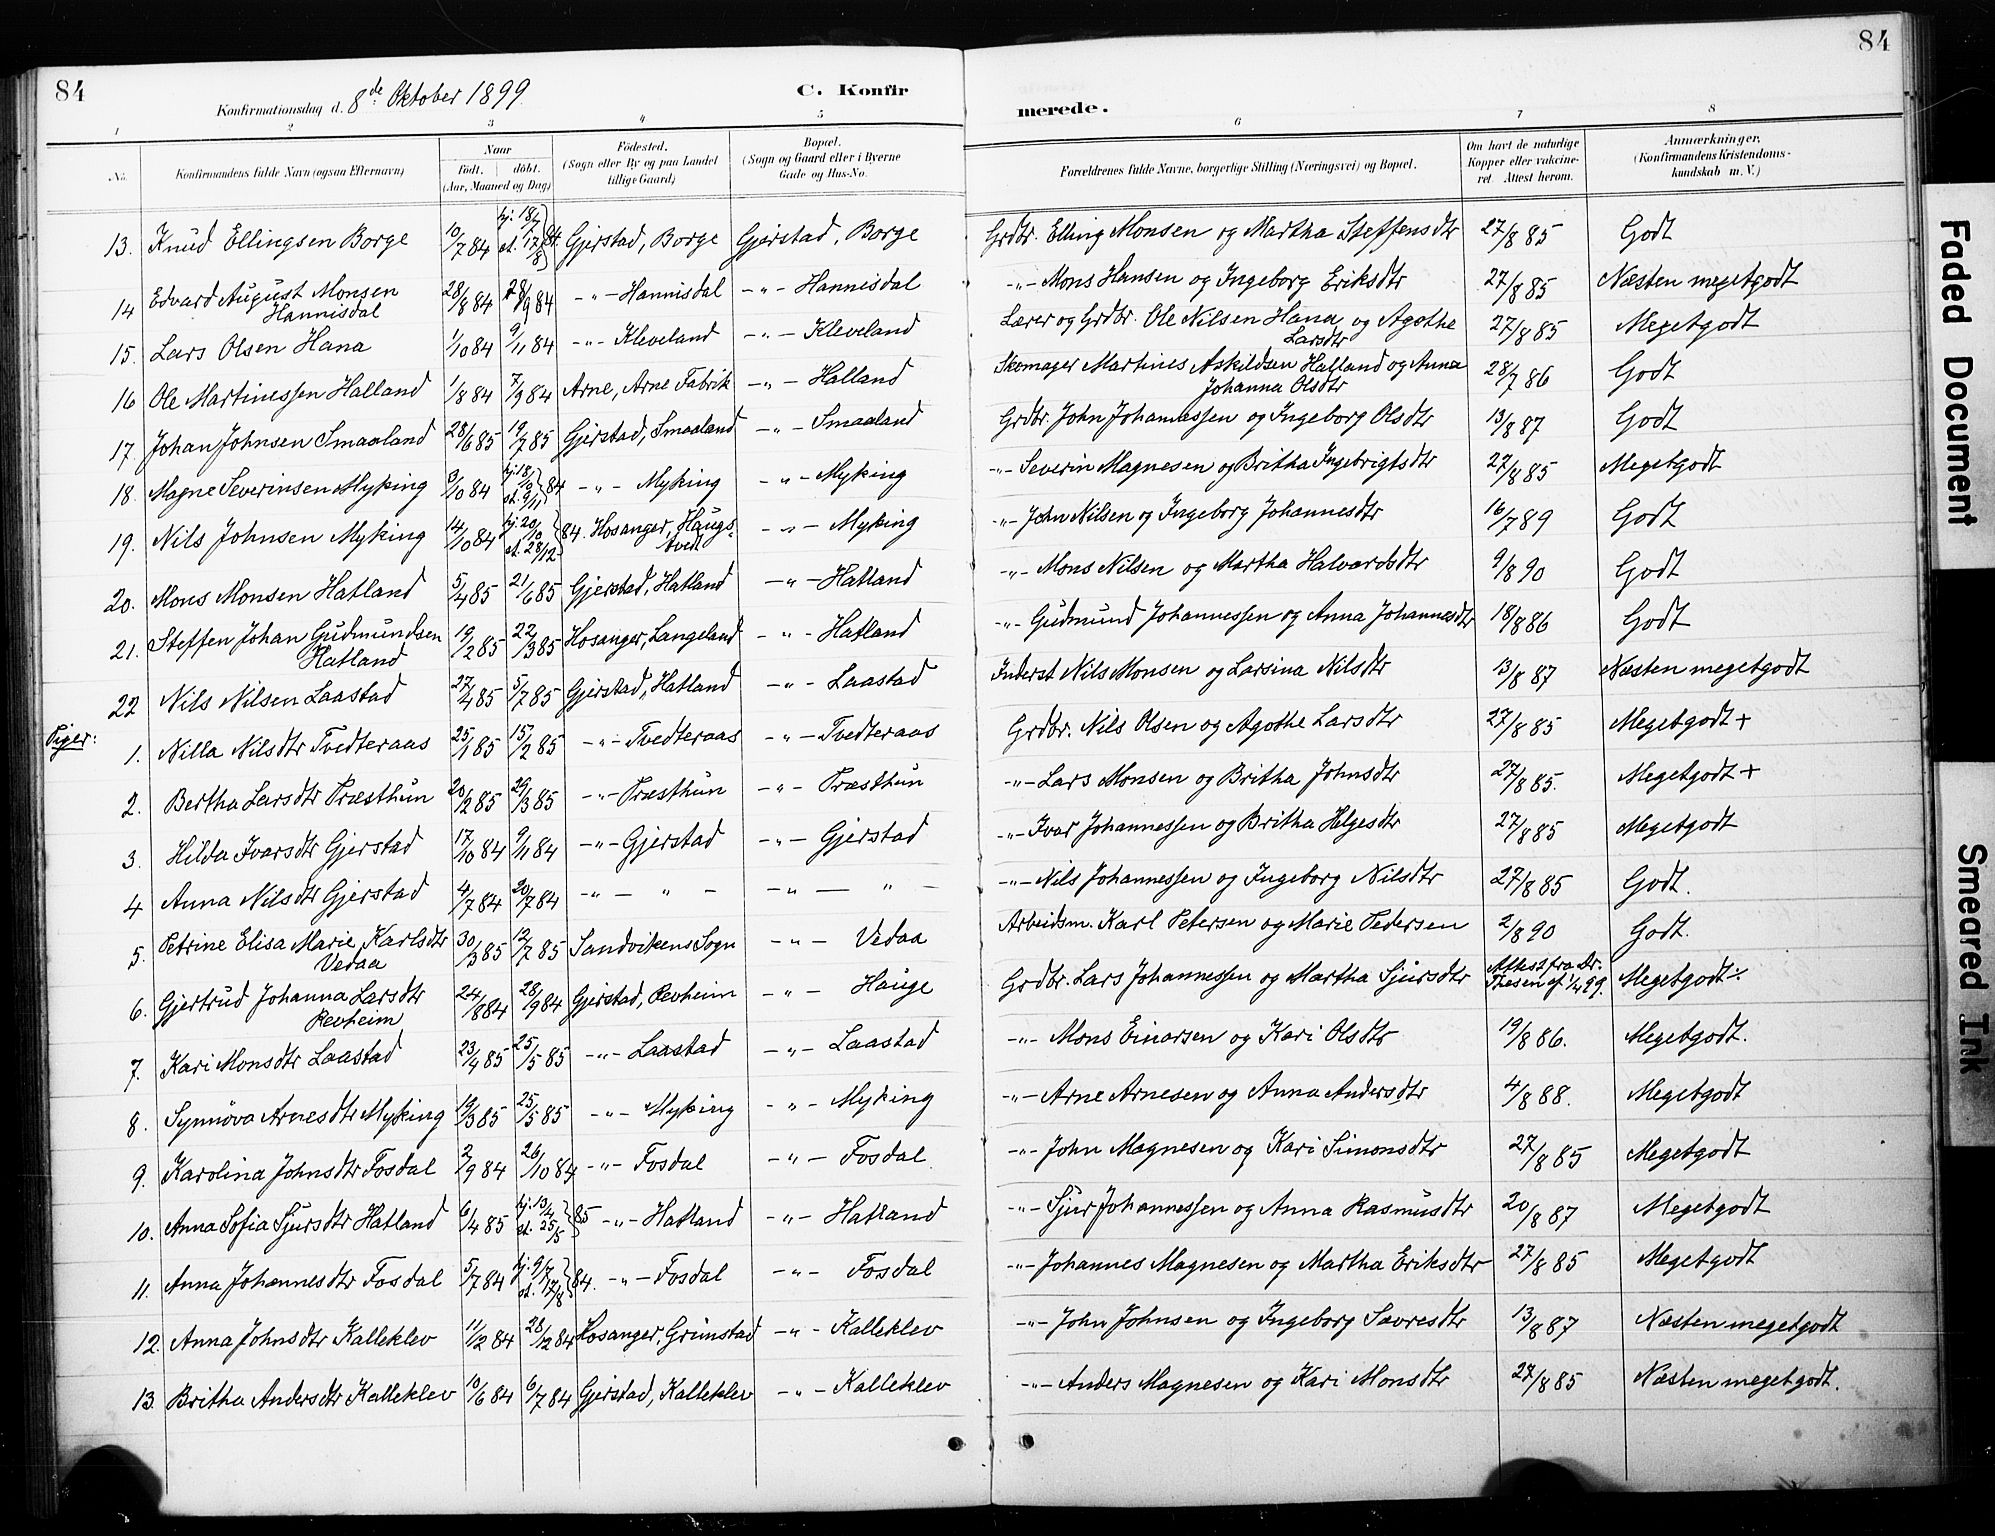 84
84
Konfirmationsdag d. 8de Oktober 1899
C. Konfir
merede.
1 2 3 4 5 6 7 8
No.
Konfirmandens fulde Navn (ogsaa Efternavn)
Naar
Født. døbt.
(Aar, Maaned og Dag)
Fødested.
(Sogn eller By og paa Landet
tillige Gaard)
Bopæl.
(Sogn og Gaard eller i Byerne
Gade og Hus-No.
Forældrenes fulde Navne, borgerlige Stilling (Næringsvei) og Bopæl.
Om havt de naturlige
Kopper eller vakcine-
ret Attest herom.
Anmærkninger,
(Konfirmandens Kristendoms-
kundskab m. V.)
13. Knud Ellingsen Borge 10/7 84 hj. 18/7 st. 17/8 } 84. Gjerstad, Borge Gjerstad, Borge Grdbr. Elling Monsen og Martha Steffensdtr 27/8 85 Godt
14 Edvard August Monsen 28/8 84 28/9 84 -"- Hannisdal -"- Hannisdal -"- Mons Hansen og Ingeborg Eriksdtr 27/8 85 Næsten megetgodt
Hannisdal
15. Lars Olsen Hana 1/10 84 9/11 84 -"- Kleveland -"- Kleveland Lærer og Grdbr. Ole Nilsen Hana og Agothe 27/8 85 Megetgodt
Larsdtr
16 Ole Martinessen Halland 1/8 84 7/9 84 Arne, Arne Fabrik -"- Halland Skomager Martines Askildsen Halland og Anna 28/7 86 Godt
Johanna Olsdtr
17. Johan Johnsen Smaaland 28/6 85 19/7 85 Gjerstad, Smaaland -"- Smaaland Grdbr. John Johannessen og Ingeborg Olsdtr 13/8 87 Godt
18. Magne Severinsen Myking 3/10 84 hj. 18/10 st. 9/11 } 84 -"- Myking -"- Myking -"- Severin Magnesen og Britha Ingebrigtsdtr 27/8 85 Megetgodt
19. Nils Johnsen Myking 14/10 84 hj. 20/10 st. 28/12 } 84. Hosanger, Haugs- -"- Myking -"- John Nilsen og Ingeborg Johannesdtr 16/7 89 Godt
tvedt
20. Mons Monsen Hatland 5/4 85 21/6 85 Gjerstad, Hatland -"- Hatland -"- Mons Nilsen og Martha Halvardsdtr 9/8 90 Godt
21. Steffen Johan Gudmundsen 19/2 85 22/3 85 Hosanger, Langeland -"- Hatland -"- Gudmund Johannessen og Anna Johannesdtr 18/8 86 Godt
Hatland
22 Nils Nilsen Laastad 27/4 85 5/7 85 Gjerstad, Hatland -"- Laastad Inderst Nils Monsen og Larsina Nilsdtr 13/8 87 Næsten megetgodt
Piger:
1. Nilla Nilsdtr Tvedteraas 25/1 85 15/2 85 -"- Tvedteraas -"- Tvedteraas Grdbr. Nils Olsen og Agothe Larsdtr 27/8 85 Megetgodt +
2. Bertha Larsdtr Præsthun 20/2 85 29/3 85 -"- Præsthun -"- Præsthun -"- Lars Monsen og Britha Johnsdtr 27/8 85. Megetgodt +
3. Hilda Ivarsdtr Gjerstad 17/10 84 9/11 84 -"- Gjerstad -"- Gjerstad -"- Ivar Johannessen og Britha Helgesdtr 27/8 85 Megetgodt
4 Anna Nilsdtr Gjerstad 4/7 84 20/7 84 -"- " - -"- " - -"- Nils Johannessen og Ingeborg Nilsdtr 27/8 85 Godt.
5. Petrine Elisa Marie Karlsdtr 30/3 85 12/7 85 Sandvikens Sogn -"- Vedaa Arbeidsm. Karl Petersen og Marie Pedersen 2/8 90 Godt.
Vedaa
6. Gjertrud Johanna Larsdtr 24/8 84 28/9 84 Gjerstad, Revheim -"- Hauge Grdbr. Lars Johannessen og Martha Sjursdtr Attest fra Dr. Thesen af 1/4 99. Megetgodt
Revheim
7. Kari Monsdtr Laastad 23/4 85 25/5 85 -"- Laastad -"- Laastad -"- Mons Einarsen og Kari Olsdtr 19/8 86. Megetgodt.
8. Synnöva Arnesdtr Myking 19/3 85 25/5 85 -"- Myking -"- Myking -"- Arne Arnesen og Anna Andersdtr 4/8 88. Megetgodt
9. Karolina Johnsdtr Fosdal 2/9 84 26/10 84 -"- Fosdal -"- Fosdal -"- John Magnesen og Kari Simonsdtr 27/8 85 Megetgodt
10. Anna Sofia Sjursdtr Hatland 6/4 85 hj. 13/4 st. 25/5 } 85 -"- Hatland -"- Hatland -"- Sjur Johannessen og Anna Rasmusdtr 20/8 87 Megetgodt
11. Anna Johannesdtr Fosdal 5/7 84 hj. 9/7 st. 17/8 } 84. -"- Fosdal -"- Fosdal -"- Johannes Magnesen og Martha Eriksdtr 27/8 85 Megetgodt
12. Anna Johnsdtr Kalleklev 11/12 84 28/12 84 Hosanger, Grimstad -"- Kalleklev -"- John Johnsen og Ingeborg Savresdtr 13/8 87 Næsten megetgodt
13. Britha Andersdtr Kalleklev 10/6 84 6/7 84 Gjerstad, Kalleklev -"- Kalleklev -"- Anders Magnesen og Kari Monsdtr 27/8 85 Næsten megetgodt.
Faded Document
Smeared Ink